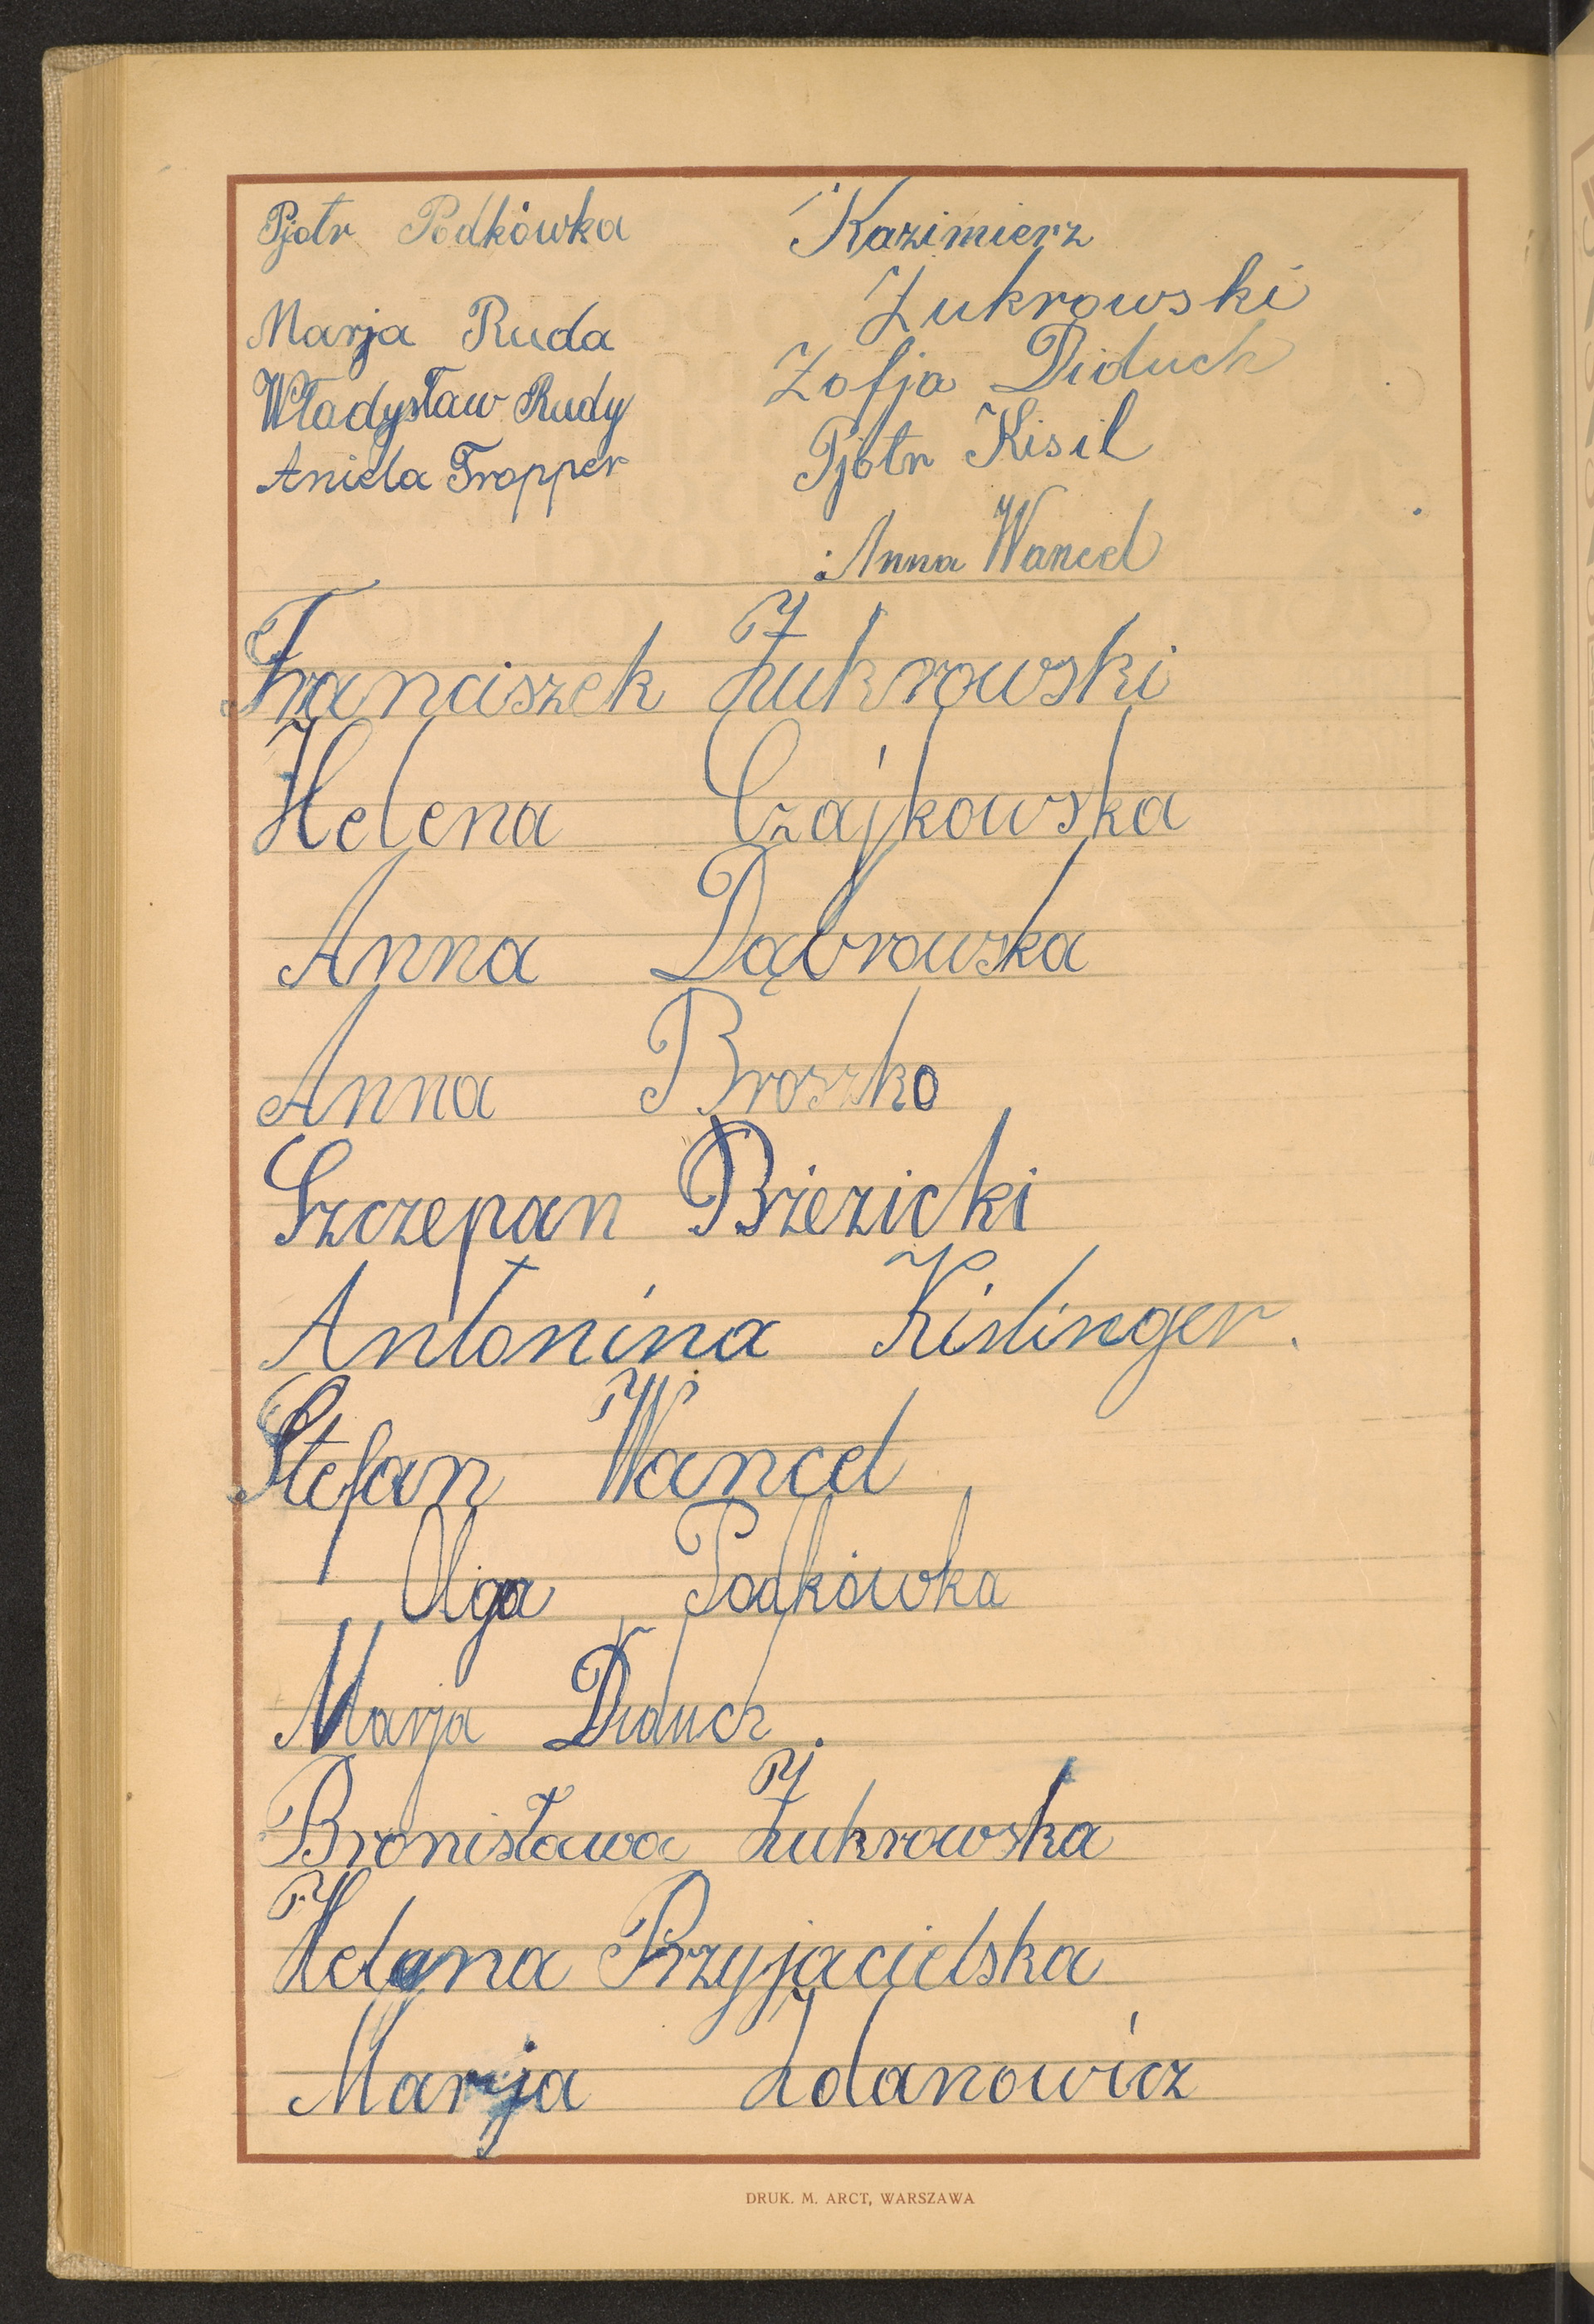 Pjotr Podkówka
Marja Ruda
Władysław Rudy
Aniela Tropper
Kazimierz
Żukrowski
Zofja Diduch
Pjotr Kisil
Anna Wancel
Franciszek Żukrowski
Helena Czajkowska
Anna Dąbrowska
Anna Broszko
Szczepan Bżezicki
Antonina Kislinger.
Stefan Wancel
Olga Podkówka
Marja Diduch.
Bronisława Żukrowska
Helena Przyjacielska
Marja Zdanowicz
DRUK. M. ARCT, WARSZAWA